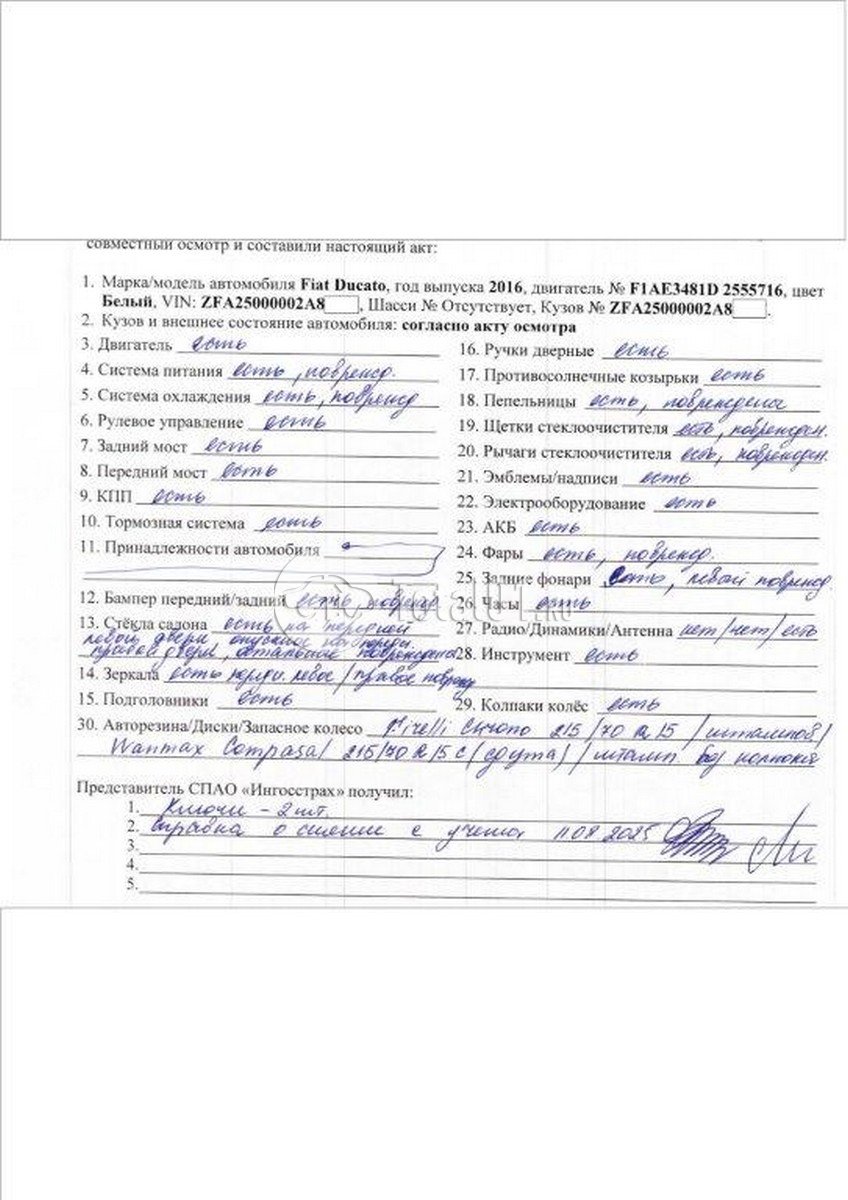 совместный осмотр и составили настоящий акт:
1. Марка/модель автомобиля Fiat Ducato, год выпуска 2016, двигатель № F1AE3481D 2555716, цвет
Белый, VIN: ZFA25000002A8, Шасси № Отсутствует, Кузов № ZFA25000002A8.
2. Кузов и внешнее состояние автомобиля: согласно акту осмотра
3. Двигатель есть
4. Система питания есть, поврежд.
5. Система охлаждения есть, поврежд
6. Рулевое управление есть
7. Задний мост есть
8. Передний мост есть
9. КПП есть
10. Тормозная система есть
11. Принадлежности автомобиля
12. Бампер передний/задний есть поврежд
13. Стёкла салона есть на передней
левой двери, опускное на передн.
правой двери, остальные повреждены
14. Зеркала есть левое / правое поврежд
15. Подголовники есть
16. Ручки дверные есть
17. Противосолнечные козырьки есть
18. Пепельницы есть, повреждены
19. Щетки стеклоочистителя есть, поврежден.
20. Рычаги стеклоочистителя есть, поврежден.
21. Эмблемы/надписи есть
22. Электрооборудование есть
23. АКБ есть
24. Фары есть, поврежд.
25. Задние фонари есть, левый поврежд.
26. Часы есть
27. Радио/Динамики/Антенна нет/нет/есть
28. Инструмент есть
29. Колпаки колёс есть
30. Авторезина/Диски/Запасное колесо Pirelli Chrono 215/70 R15 /штампов/
Wanmax Compasal 215/70 R15 C (спута) / штамп без колпаков
Представитель СПАО «Ингосстрах» получил:
1. Ключи - 2 шт.
2. Справка о снятие с учета 11 08 2025
3.
4.
5.
Total01.RU